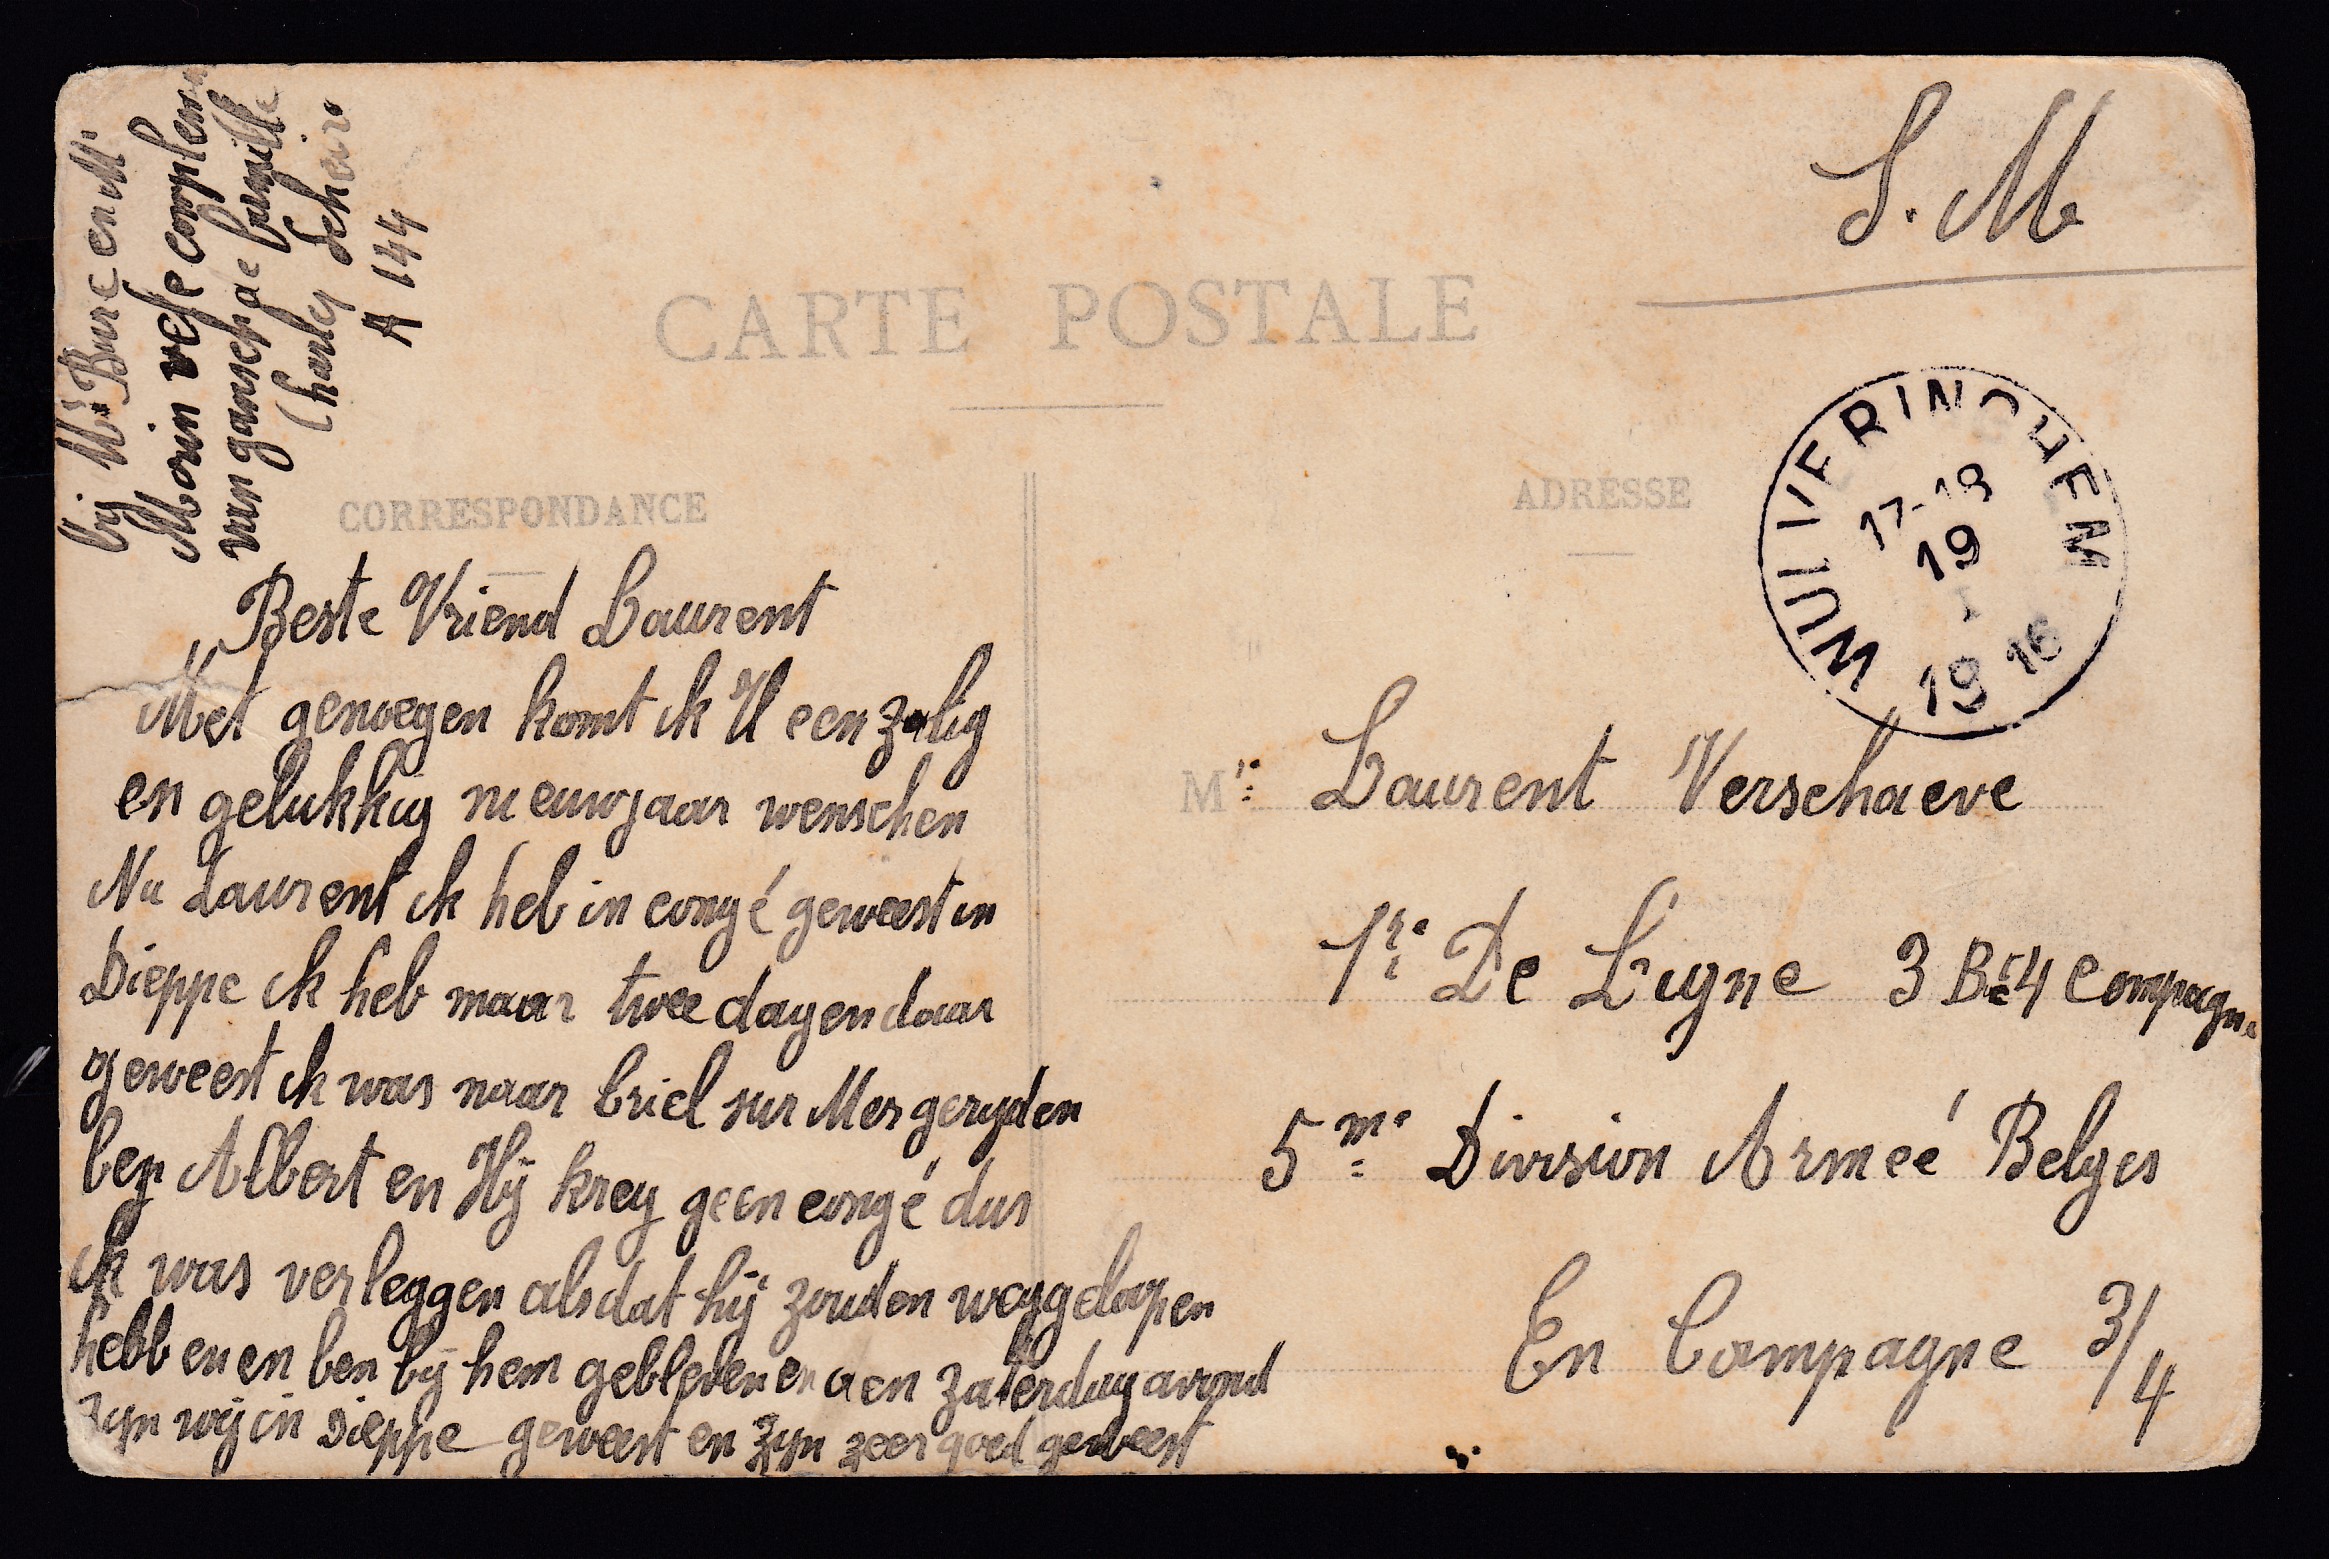 S. M
CARTE POSTALE
CORRESPONDANCE
ADRESSE
WULVERINGHEM
17-18
19
1
19 16
Beste Vriend Laurent
Met genoegen komt ik U een zalig
en gelukkig nieuwjaar wenschen
Nu Laurent ik heb in congé geweest in
Dieppe ik heb maar twee dagen daar
geweest ik was naar Criel sur Mer geryden
bey Albert en Hij kreg geen congé dus
ik was verleggen alsdat hij zouden weggelopen
hebben en ben bij hem gebleven en aen zaterdag avond
zijn wij in Dieppe geweest en zyn zeer goed geweest
bij Mr
en M.
Morin vele complem
van gansch de familie
Charley
A 144
Mr: Laurent Verschaeve
1r: De Ligne 3 B 4 Compagn.
5me: Division Armeé Belges
En Campagne 3/4